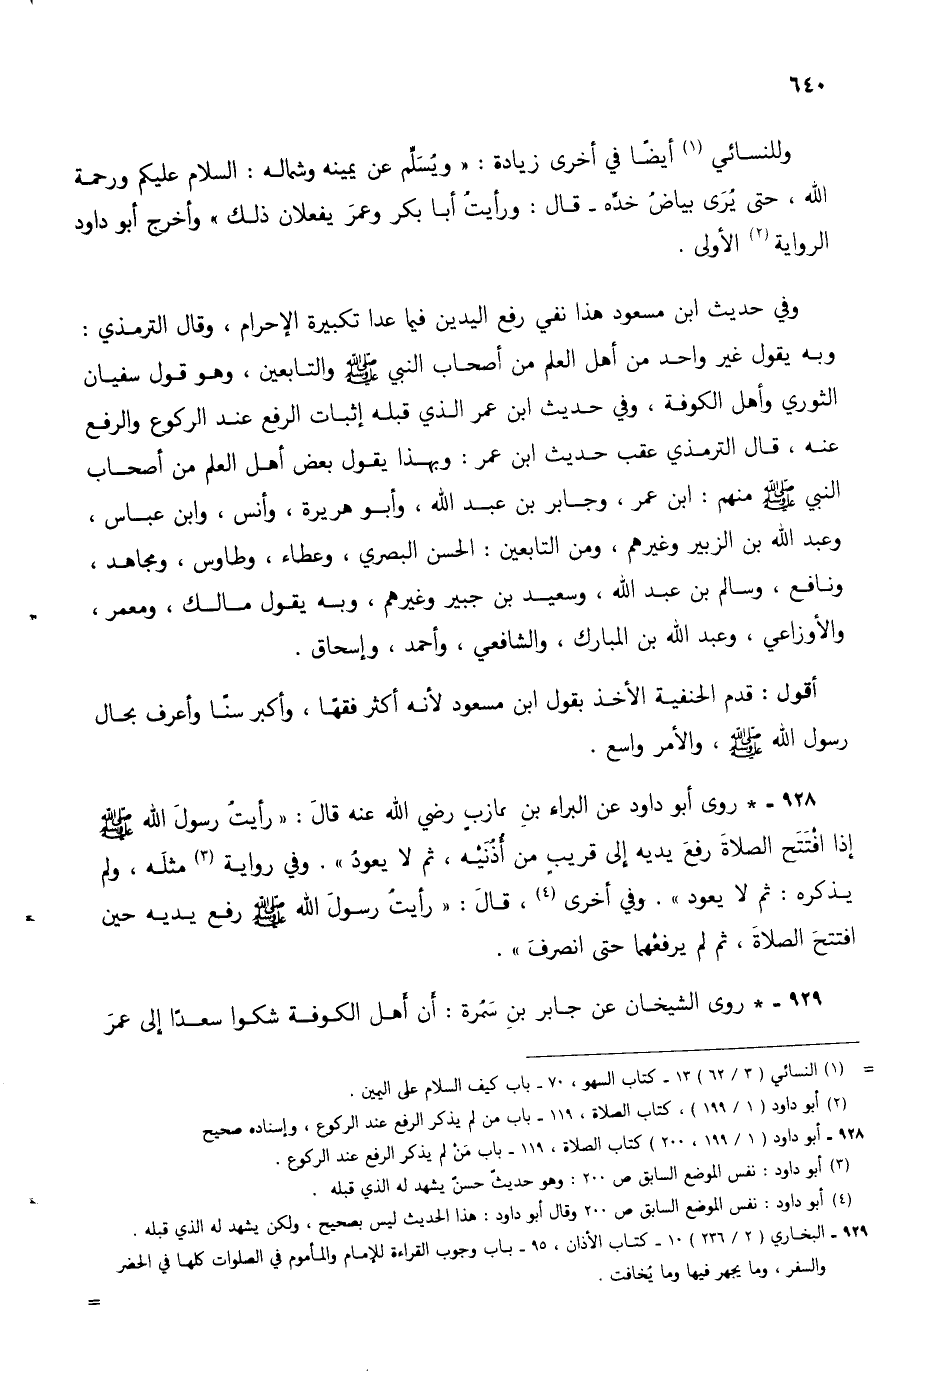 ٦٤٠
وللنسائي (١) أيضًا في أخرى زيادة : « ويُسَلِّم عن يمينه وشماله : السلام عليكم ورحمة
الله ، حتى يُرَى بياضُ خدَّه ـ قال : ورأيتُ أبا بكر وعمرَ يفعلان ذلك » وأخرج أبو داود
الرواية (٢) الأولى .
وفي حديث ابن مسعود هذا نفي رفع اليدين فيما عدا تكبيرة الإحرام ، وقال الترمذي :
وبه يقول غير واحد من أهل العلم من أصحاب النبي ﷺ والتابعين ، وهو قول سفيان
الثوري وأهل الكوفة ، وفي حديث ابن عمر الذي قبله إثبات الرفع عند الركوع والرفع
عنه ، قال الترمذي عقب حديث ابن عمر : وبهذا يقول بعض أهل العلم من أصحاب
النبي ﷺ منهم : ابن عمر ، وجابر بن عبد الله ، وأبو هريرة ، وأنس ، وابن عباس ،
وعبد الله بن الزبير وغيرهم ، ومن التابعين : الحسن البصري ، وعطاء ، وطاوس ، ومجاهد ،
ونافع ، وسالم بن عبد الله ، وسعيد بن جبير وغيرهم ، وبه يقول مالك ، ومعمر ،
والأوزاعي ، وعبد الله بن المبارك ، والشافعي ، وأحمد ، وإسحاق .
أقول : قدم الحنفية الأخذ بقول ابن مسعود لأنه أكثر فقهًا ، وأكبر سنًا وأعرف بحال
رسول الله ﷺ ، والأمر واسع .
٩٢٨ ـ * روى أبو داود عن البراء بنِ عازبٍ رضي الله عنه قالَ : « رأيتُ رسولَ الله ﷺ
إذا افْتَتَح الصلاةَ رفعَ يديه إلى قريبٍ من أُذُنَيْه ، ثم لا يعودُ » . وفي رواية (٣) مثلَه ، ولم
يذكره : ثم لا يعود » . وفي أخرى (٤) ، قالَ : « رأيتُ رسولَ الله ﷺ رفع يديه حين
افتتحَ الصلاةَ ، ثم لم يرفعْهما حتى انصرفَ » .
٩٢٩ ـ * روى الشيخان عن جابر بنِ سَمُرة : أن أهل الكوفة شكوا سعدًا إلى عمرَ
= (١) النسائي ( ٣ / ٦٢ ) ١٣ ـ كتاب السهو ، ٧٠ ـ باب كيف السلام على اليمين .
(٢) أبو داود ( ١ / ١٩٩ ) ، كتاب الصلاة ، ١١٩ ـ باب من لم يذكر الرفع عند الركوع ، وإسناده صحيح
٩٢٨ ـ أبو داود ( ١ / ١٩٩ ، ٢٠٠ ) كتاب الصلاة ، ١١٩ ـ باب مَنْ لم يذكر الرفع عند الركوع .
(٣) أبو داود : نفس الموضع السابق ص ٢٠٠ : وهو حديثٌ حسنٌ يشهد له الذي قبله .
(٤) أبو داود : نفس الموضع السابق ص ٢٠٠ وقال أبو داود : هذا الحديث ليس بصحيح ، ولكن يشهد له الذي قبله .
٩٢٩ ـ البخاري ( ٢ / ٢٣٦ ) ١٠ ـ كتاب الأذان ، ٩٥ ـ باب وجوب القراءة للإمام والمأموم في الصلوات كلها في الحضر
والسفر ، وما يجهر فيها وما يُخافت .
=